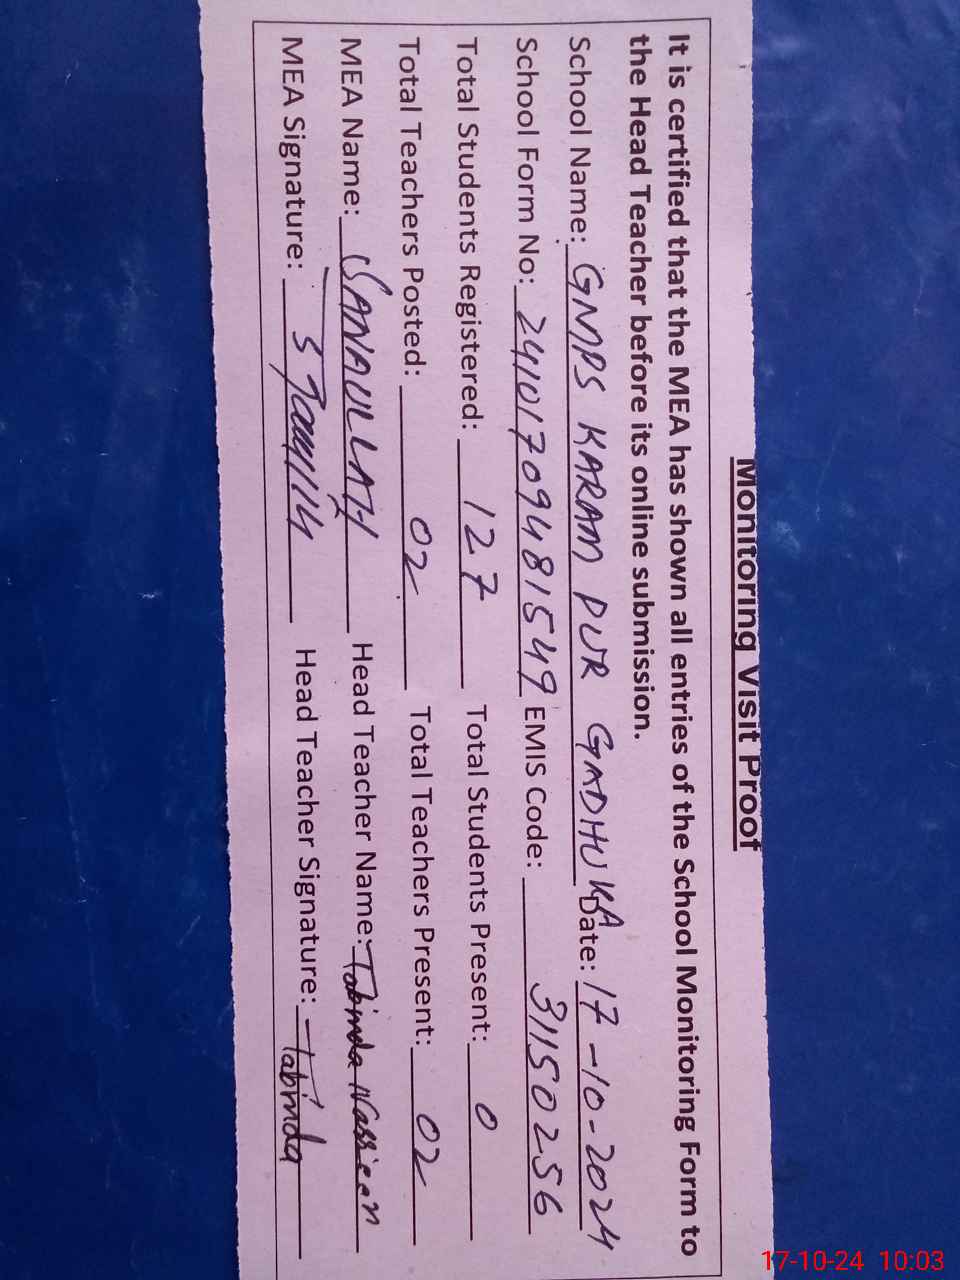 Monitoring Visit Proof
It is certified that the MEA has shown all entries of the School Monitoring Form to
the Head Teacher before its online submission.
School Name: GMPS KARAM PUR GADHUKA Date: 17-10-2024
School Form No: 24101709481549 EMIS Code: 31150256
Total Students Registered: 127 Total Students Present: 0
Total Teachers Posted: 02 Total Teachers Present: 02
MEA Name: SANAULLAH Head Teacher Name: Tabinda Nasreen
MEA Signature: Head Teacher Signature: Tabinda
17-10-24 10:03